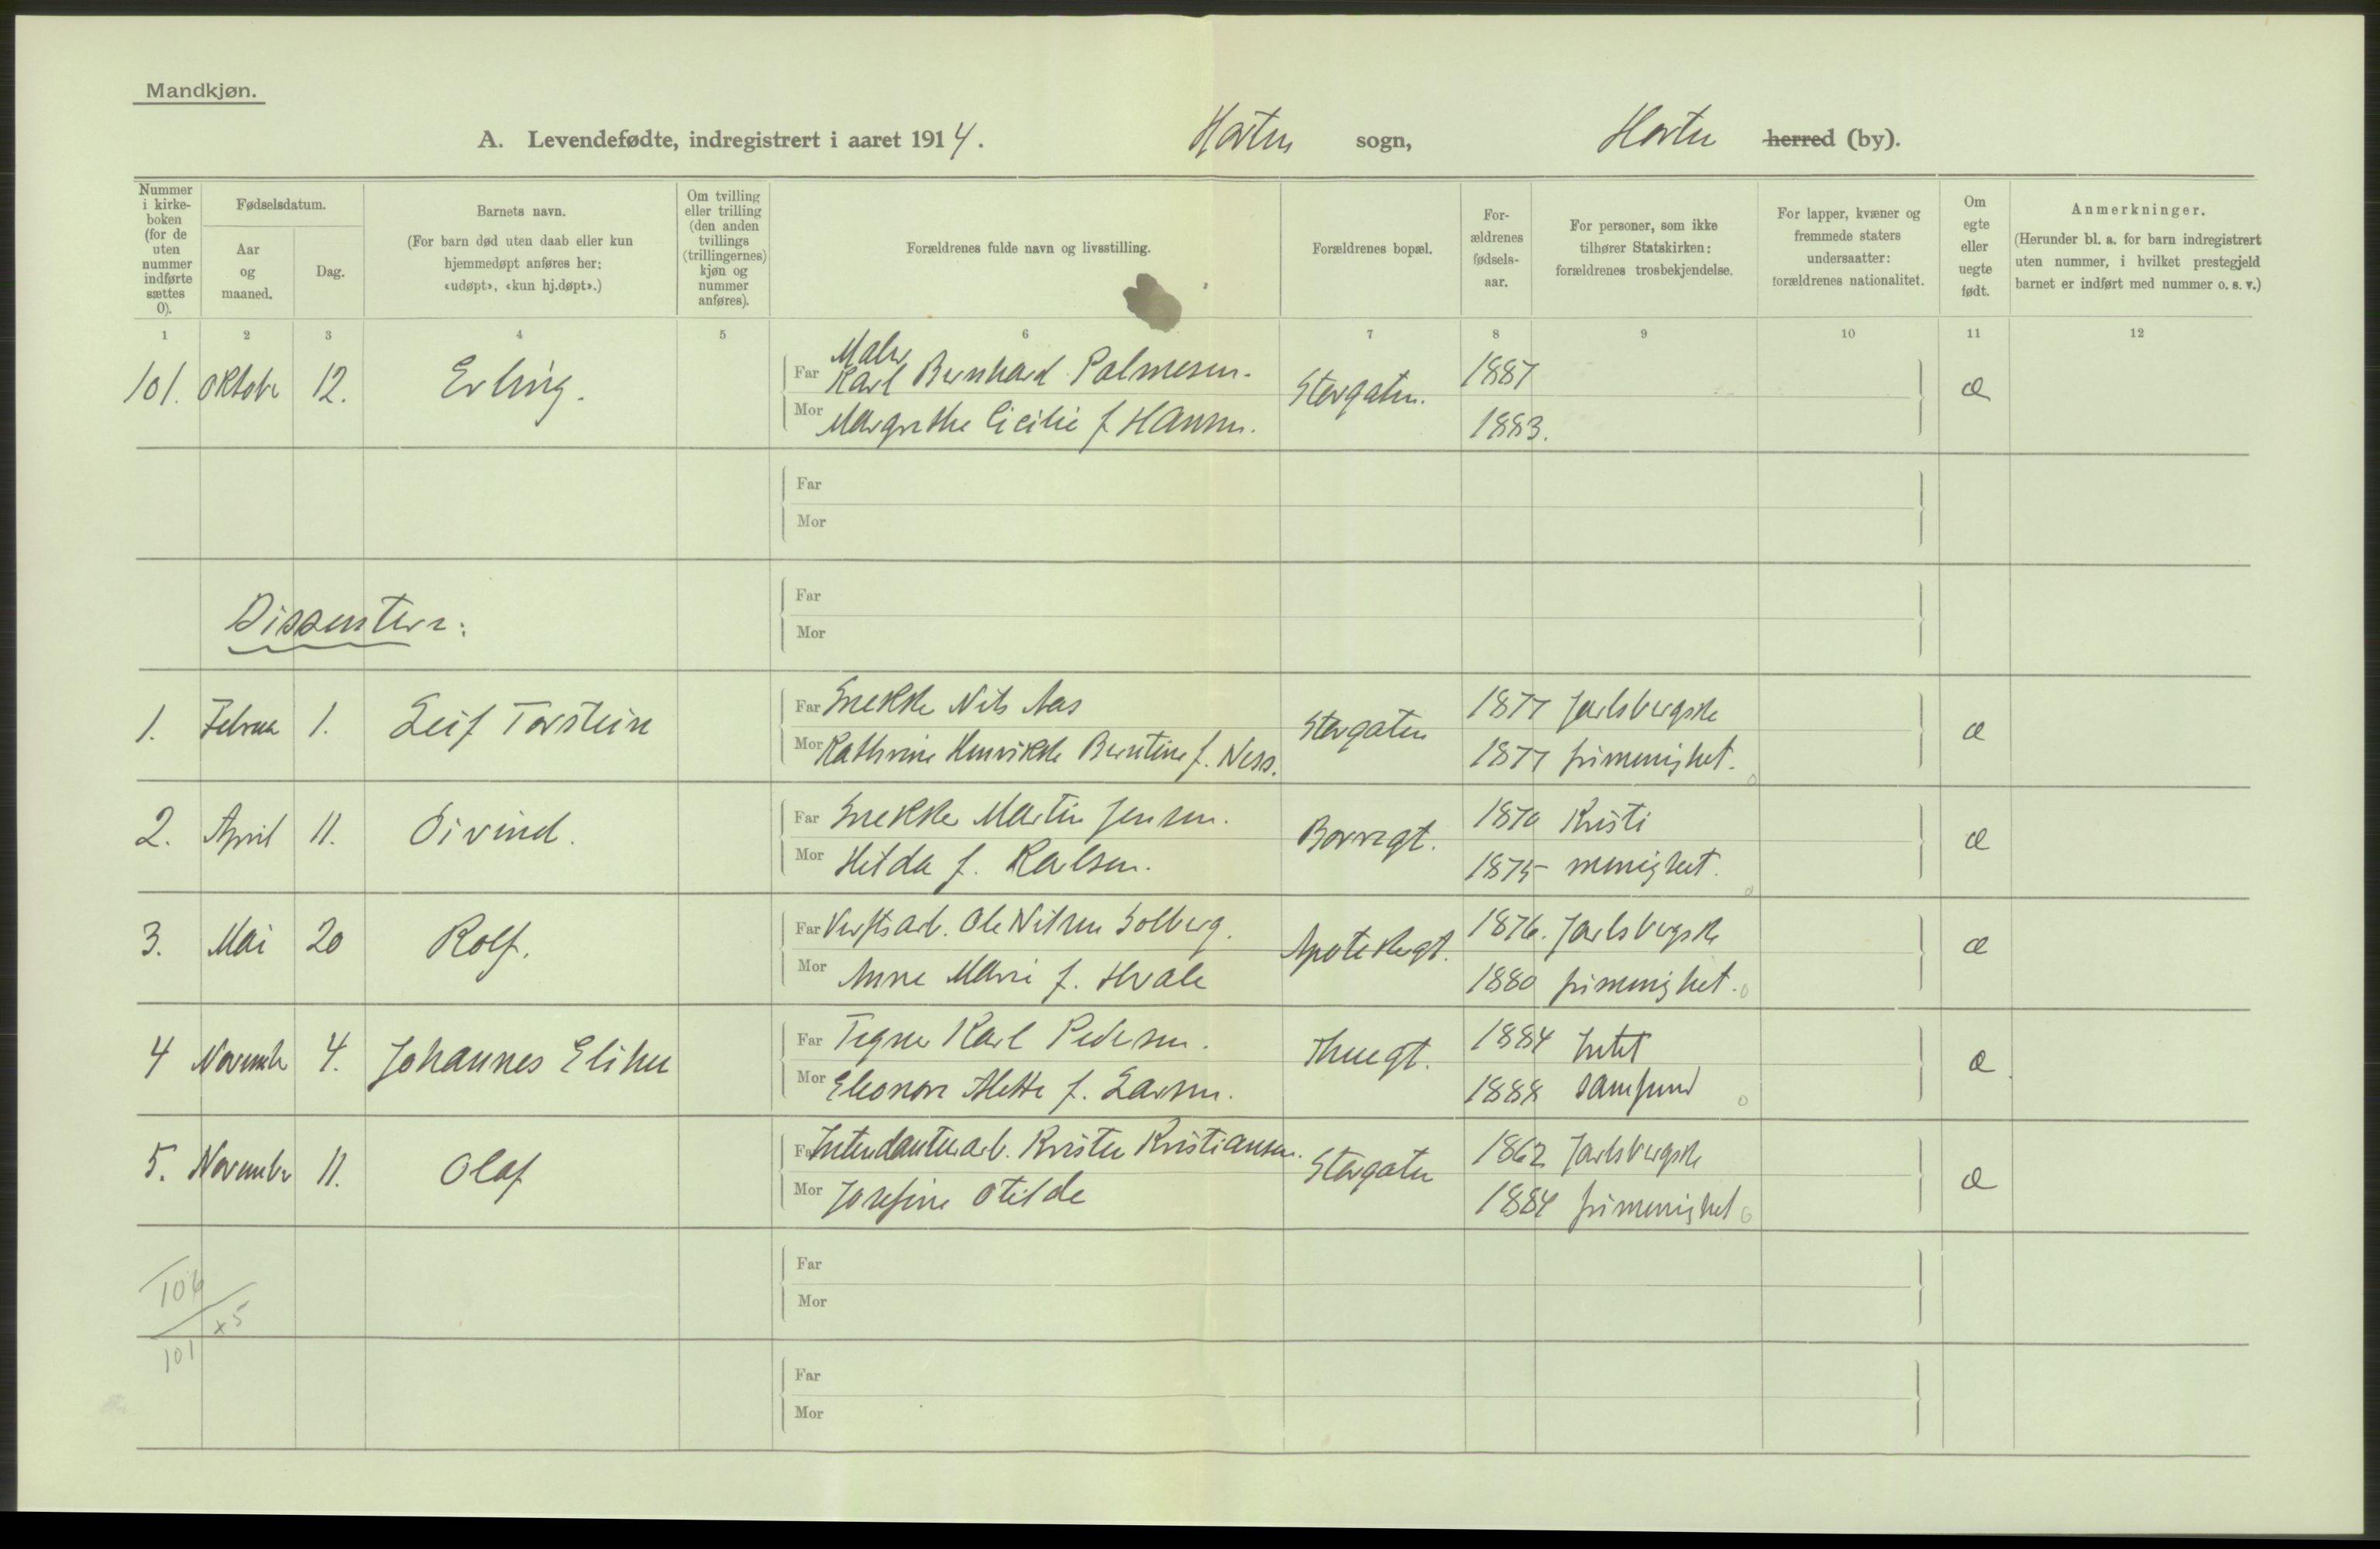 Mandkjøn.
A. Levendefødte, indregistrert i aaret 1914. Horten sogn, Horten herred (by).
Nummer i kirke-boken (for de uten nummer indførte sættes 0).
Fødselsdatum.
Aar og maaned.
Dag.
Barnets navn.
(For barn død uten daab eller kun hjemmedøpt anføres her: «udøpt», «kun hj.døpt».)
Om tvilling eller trilling (den anden tvillings (trillingernes) kjøn og nummer anføres).
Forældrenes fulde navn og livsstilling.
Forældrenes bopæl.
For-ældrenes fødsels-aar.
For personer, som ikke tilhører Statskirken: forældrenes trosbekjendelse.
For lapper, kvæner og fremmede staters undersaatter: forældrenes nationalitet.
Om egte eller uegte født.
Anmerkninger.
(Herunder bl. a. for barn indregistrert uten nummer, i hvilket prestegjeld barnet er indført med nummer o. s. v.)
1 2 3 4 5 6 7 8 9 10 11 12
101. Oktober 12. Erling. Far Maler Karl Bernhard Palmesen. Storgaten. 1887 æ
Mor Margrethe Cicilie f Hansen. 1883.
Far
Mor
Dissentere:
Far
Mor
1. Februar 1. Leif Torstein Far Snekker Nils Aas Storgaten 1877 Jarlsbergske æ
Mor Kathrine Henrikke Berntine f. Ness. 1877 frimenighet.
2. April 11. Öivind. Far Snekker Martin Jensen. Borregt. 1870 Kristi æ
Mor Hilda f. Karlsen. 1875 menighet.
3. Mai 20 Rolf. Far Verftsarb. Ole Nilsen Solberg. Apotekergt. 1876. Jarlsbergske æ
Mor Anne Marie f. Hvale 1880 frimenighet.
4 November 4. Johannes Elihu Far Tegner Karl Pedersen. Thuegt. 1884 Intet æ
Mor Eleonore Alette f. Larsen. 1888 samfund
5. November 11. Olaf Far Intendanturarb. Krister Kristiansen. Storgaten 1862 Jarlsbergske æ
Mor Josefine Otilde 1884 frimenighet
Far
106
Mor
x5
101
Far
Mor